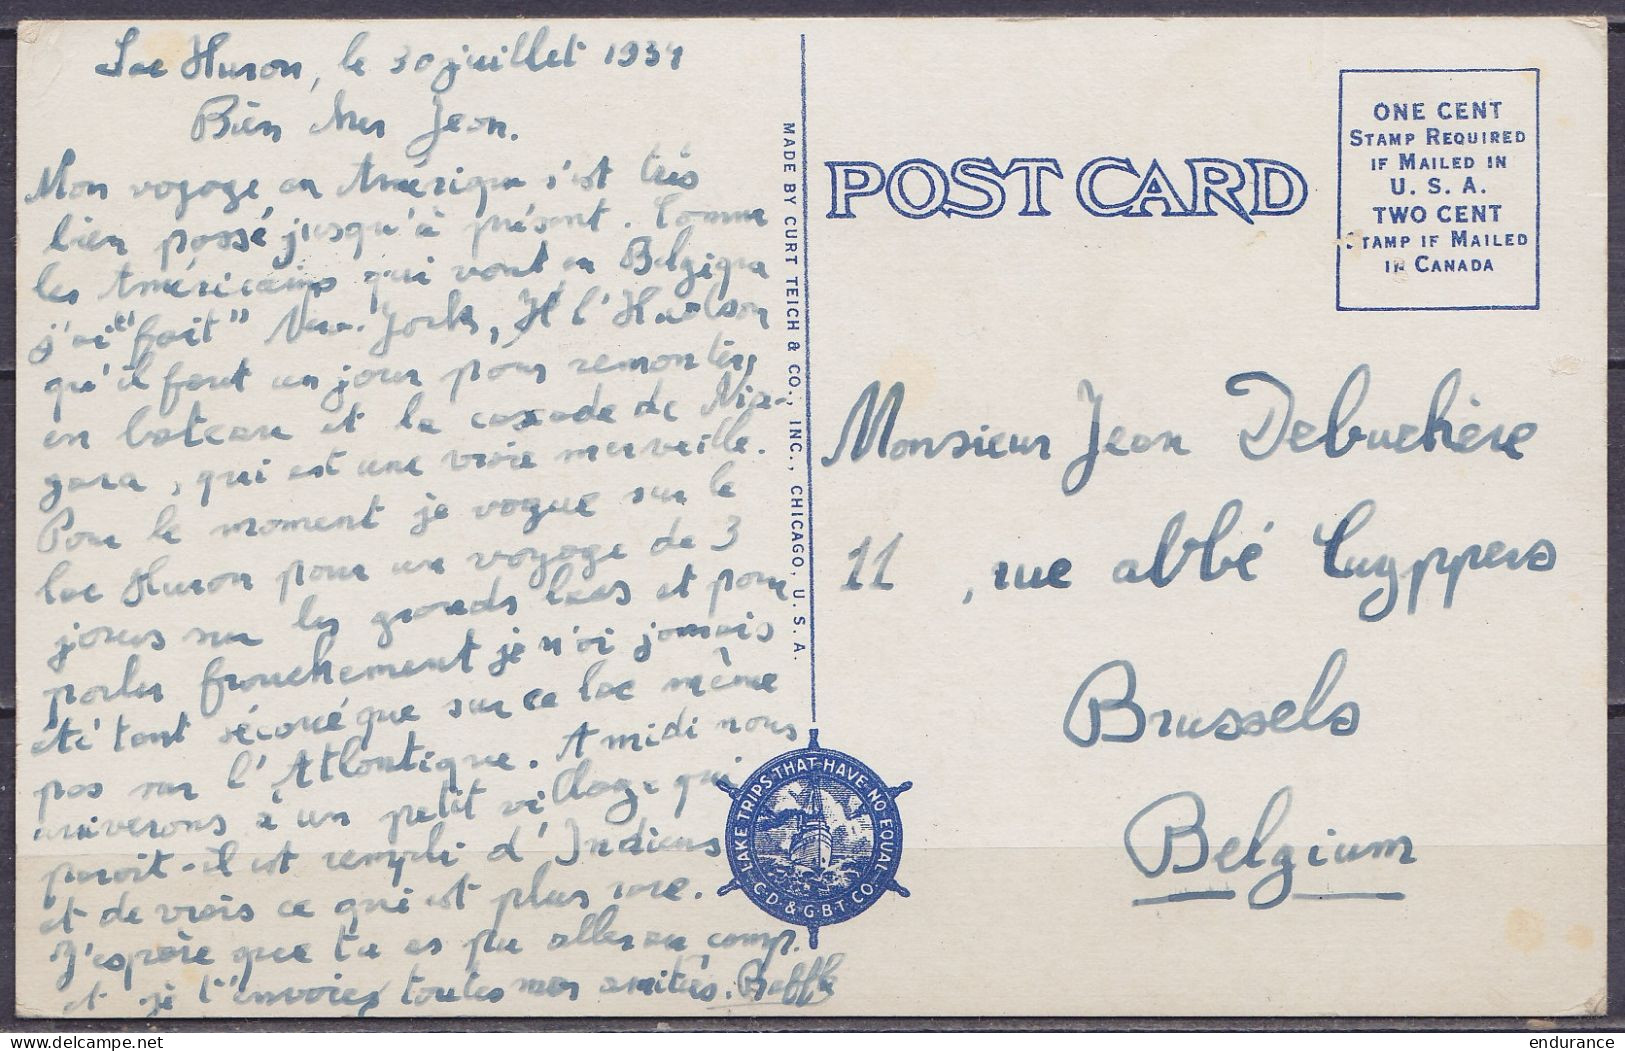 Lac Huron, le 30 juillet 1934
Bien cher Jean.
Mon voyage en Amérique s'est très
bien passé jusqu'à présent. Comme
les Américains qui vont en Belgique
j'ai "fait" New-York, l'Hudson
qu'il faut un jour pour remonter
en bateau et la cascade de Nia-
gara, qui est une vraie merveille.
Pour le moment je vogue sur le
lac Huron pour un voyage de 3
jours sur les grands lacs et pour
parler franchement je n'ai jamais
été tant secoué que sur ce lac même
pas sur l'Atlantique. A midi nous
arriverons à un petit village qui
parait-il est rempli d'Indiens
et de vrais ce qui est plus rare.
J'espère que tu as pu aller au camp.
et je t'envoies toutes mes amitiés.
MADE BY CURT TEICH & CO., INC., CHICAGO, U. S. A.
POST CARD
ONE CENT
STAMP REQUIRED
IF MAILED IN
U. S. A.
TWO CENT
STAMP IF MAILED
IN CANADA
Monsieur Jean Debuchère
11, rue abbé Cuyppers
Brussels
Belgium
LAKE TRIPS THAT HAVE NO EQUAL
C·D·&G·B·T·CO.
endurance
Delcampe.net